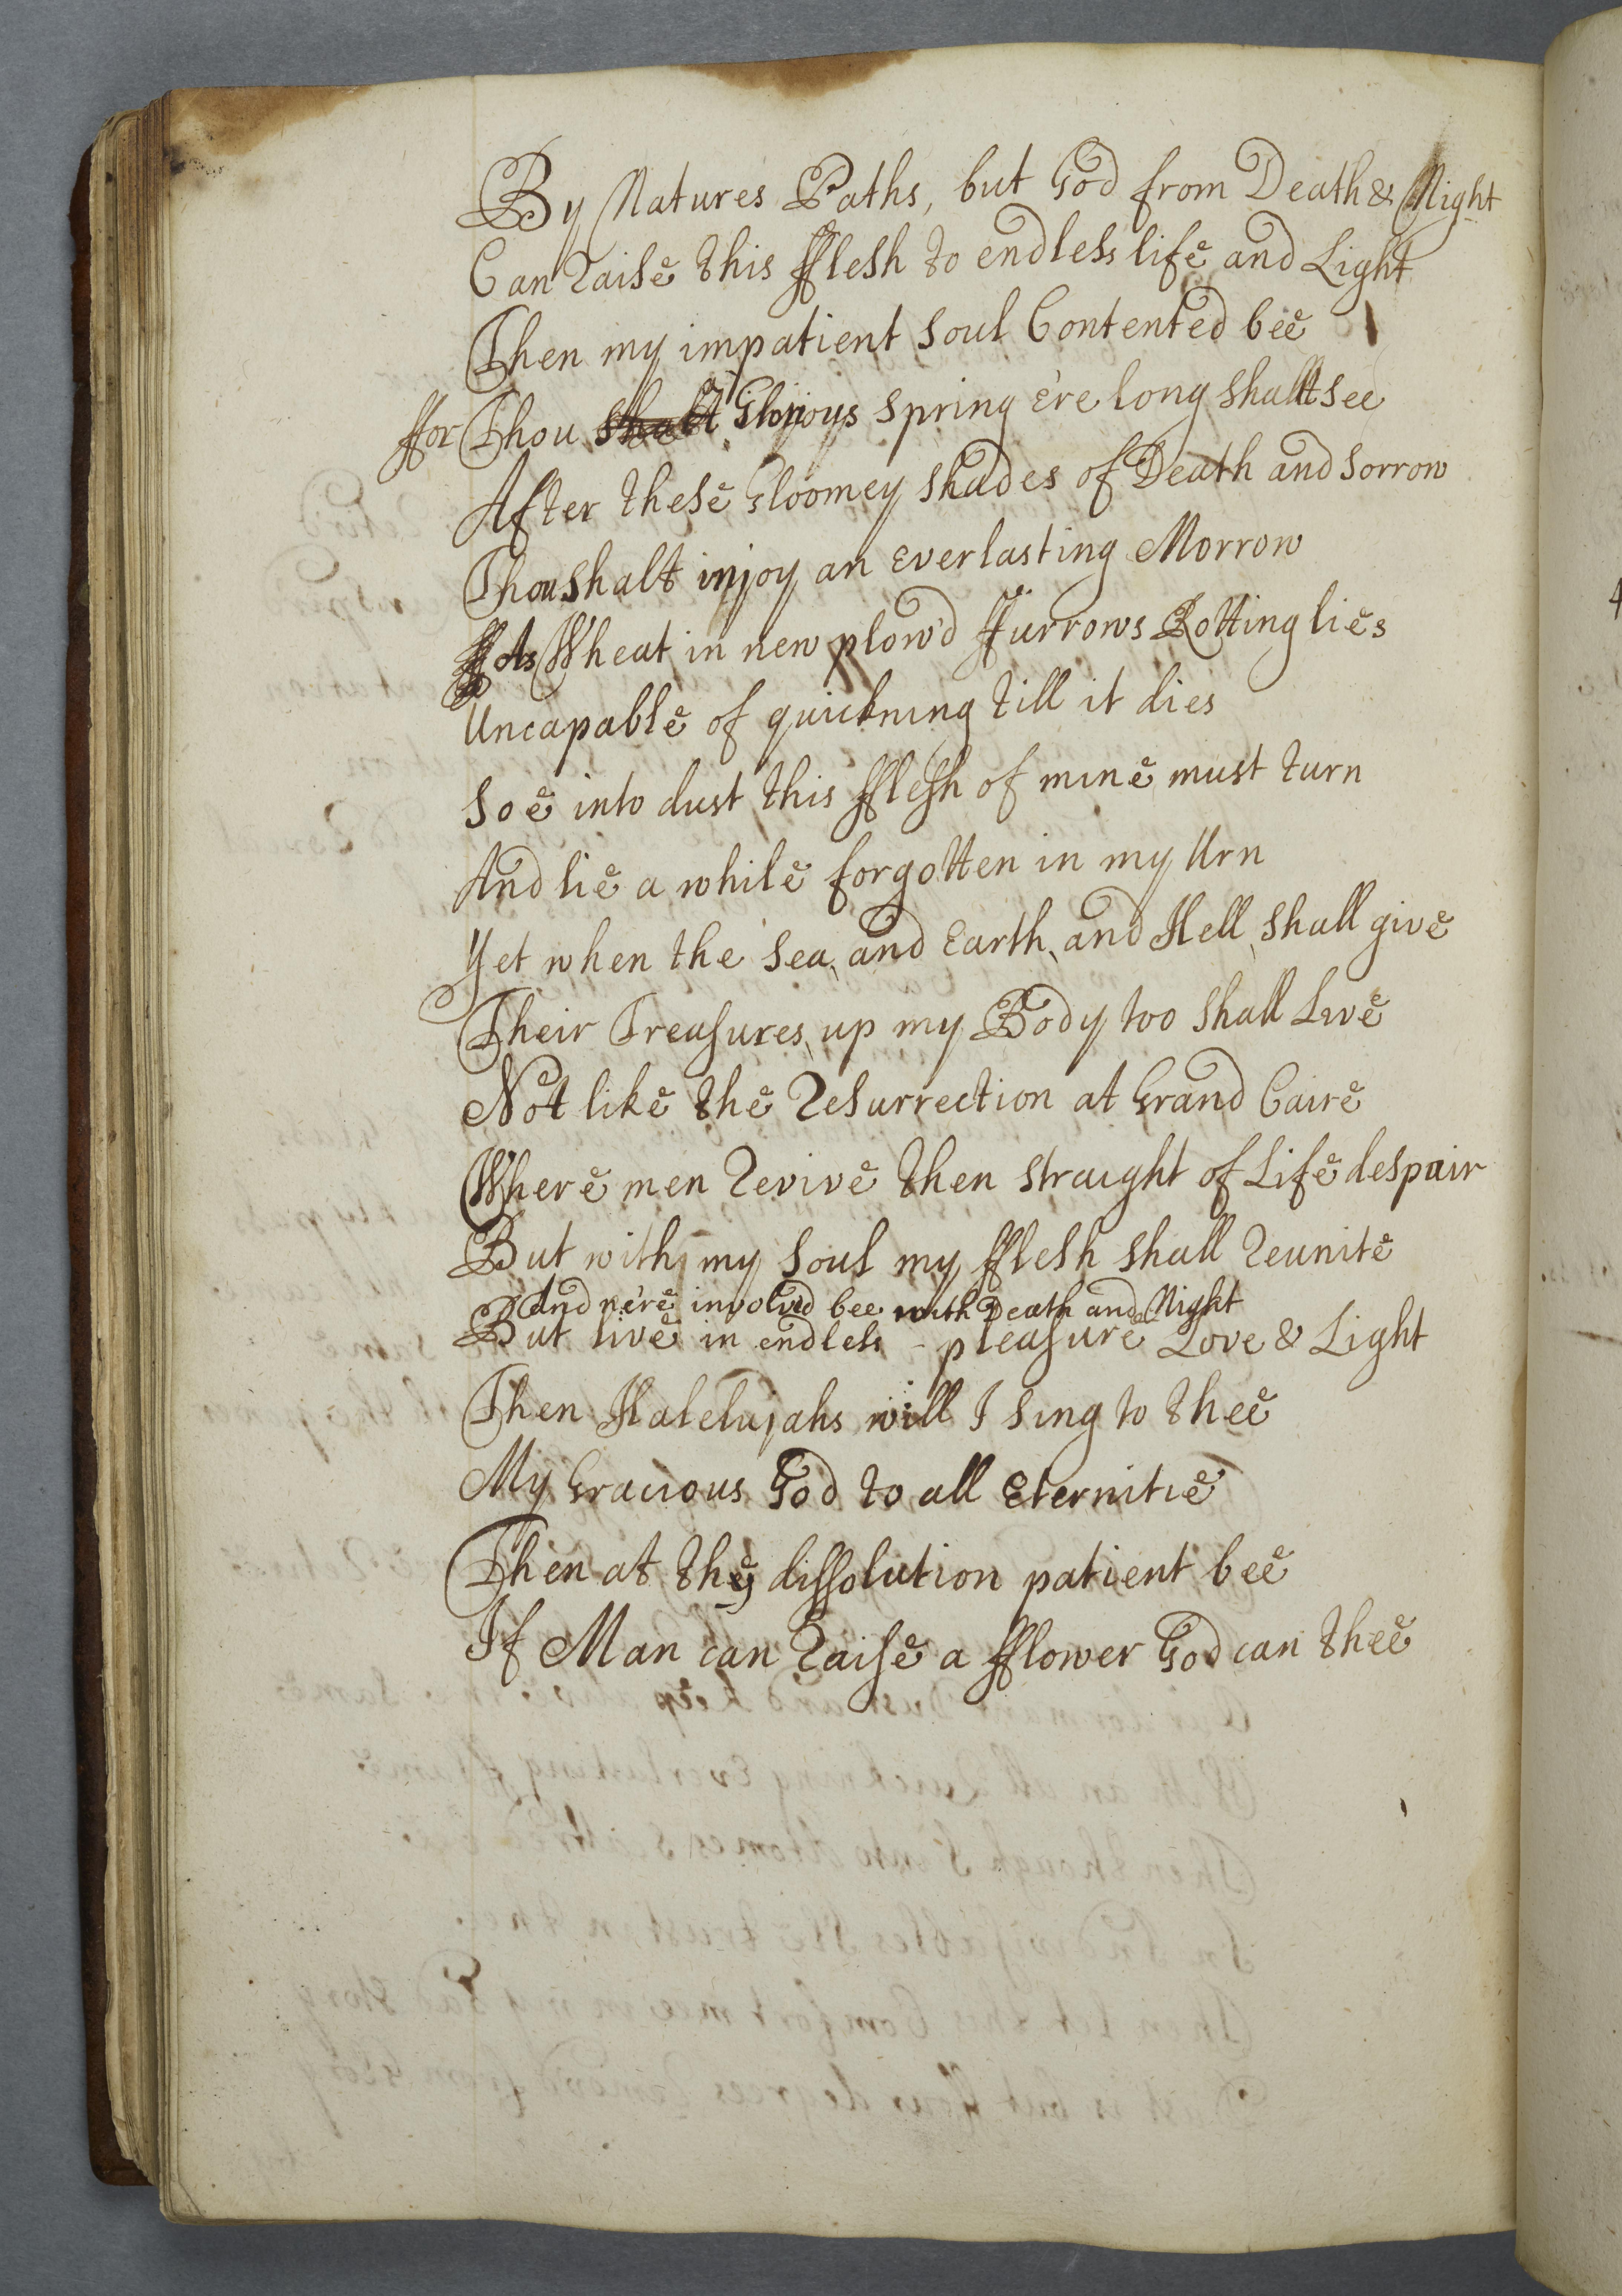 By Natures Paths, but God from Death & Night
Can raise this fflesh to endless life and Light
Then my impatient soul Contented bee
ffor Thou shalt Glorious spring e're long shallt see
After these Gloomey shades of Death and sorrow
Thou shalt injoy an everlasting Morrow
As Wheat in new plow'd ffurrows Rotting lies
Uncapable of quickning till it dies
Soe into dust this fflesh of mine must turn
And lie a while forgotten in my Urn
Yet when the sea, and Earth, and Hell, shall give
Their Treasures up my Body too shall Live
Not like the Resurrection at Grand Caire
Where men Revive then straight of Life despair
But with my soul my fflesh shall Reunite
And ne're involvd bee with Death and Night
But live in endless - pleasure Love & Light
Then Halelujahs will I sing to thee
My Gracious God to all Eternitie
Then at thy dissolution patient bee
If Man can Raise a fflower God can thee